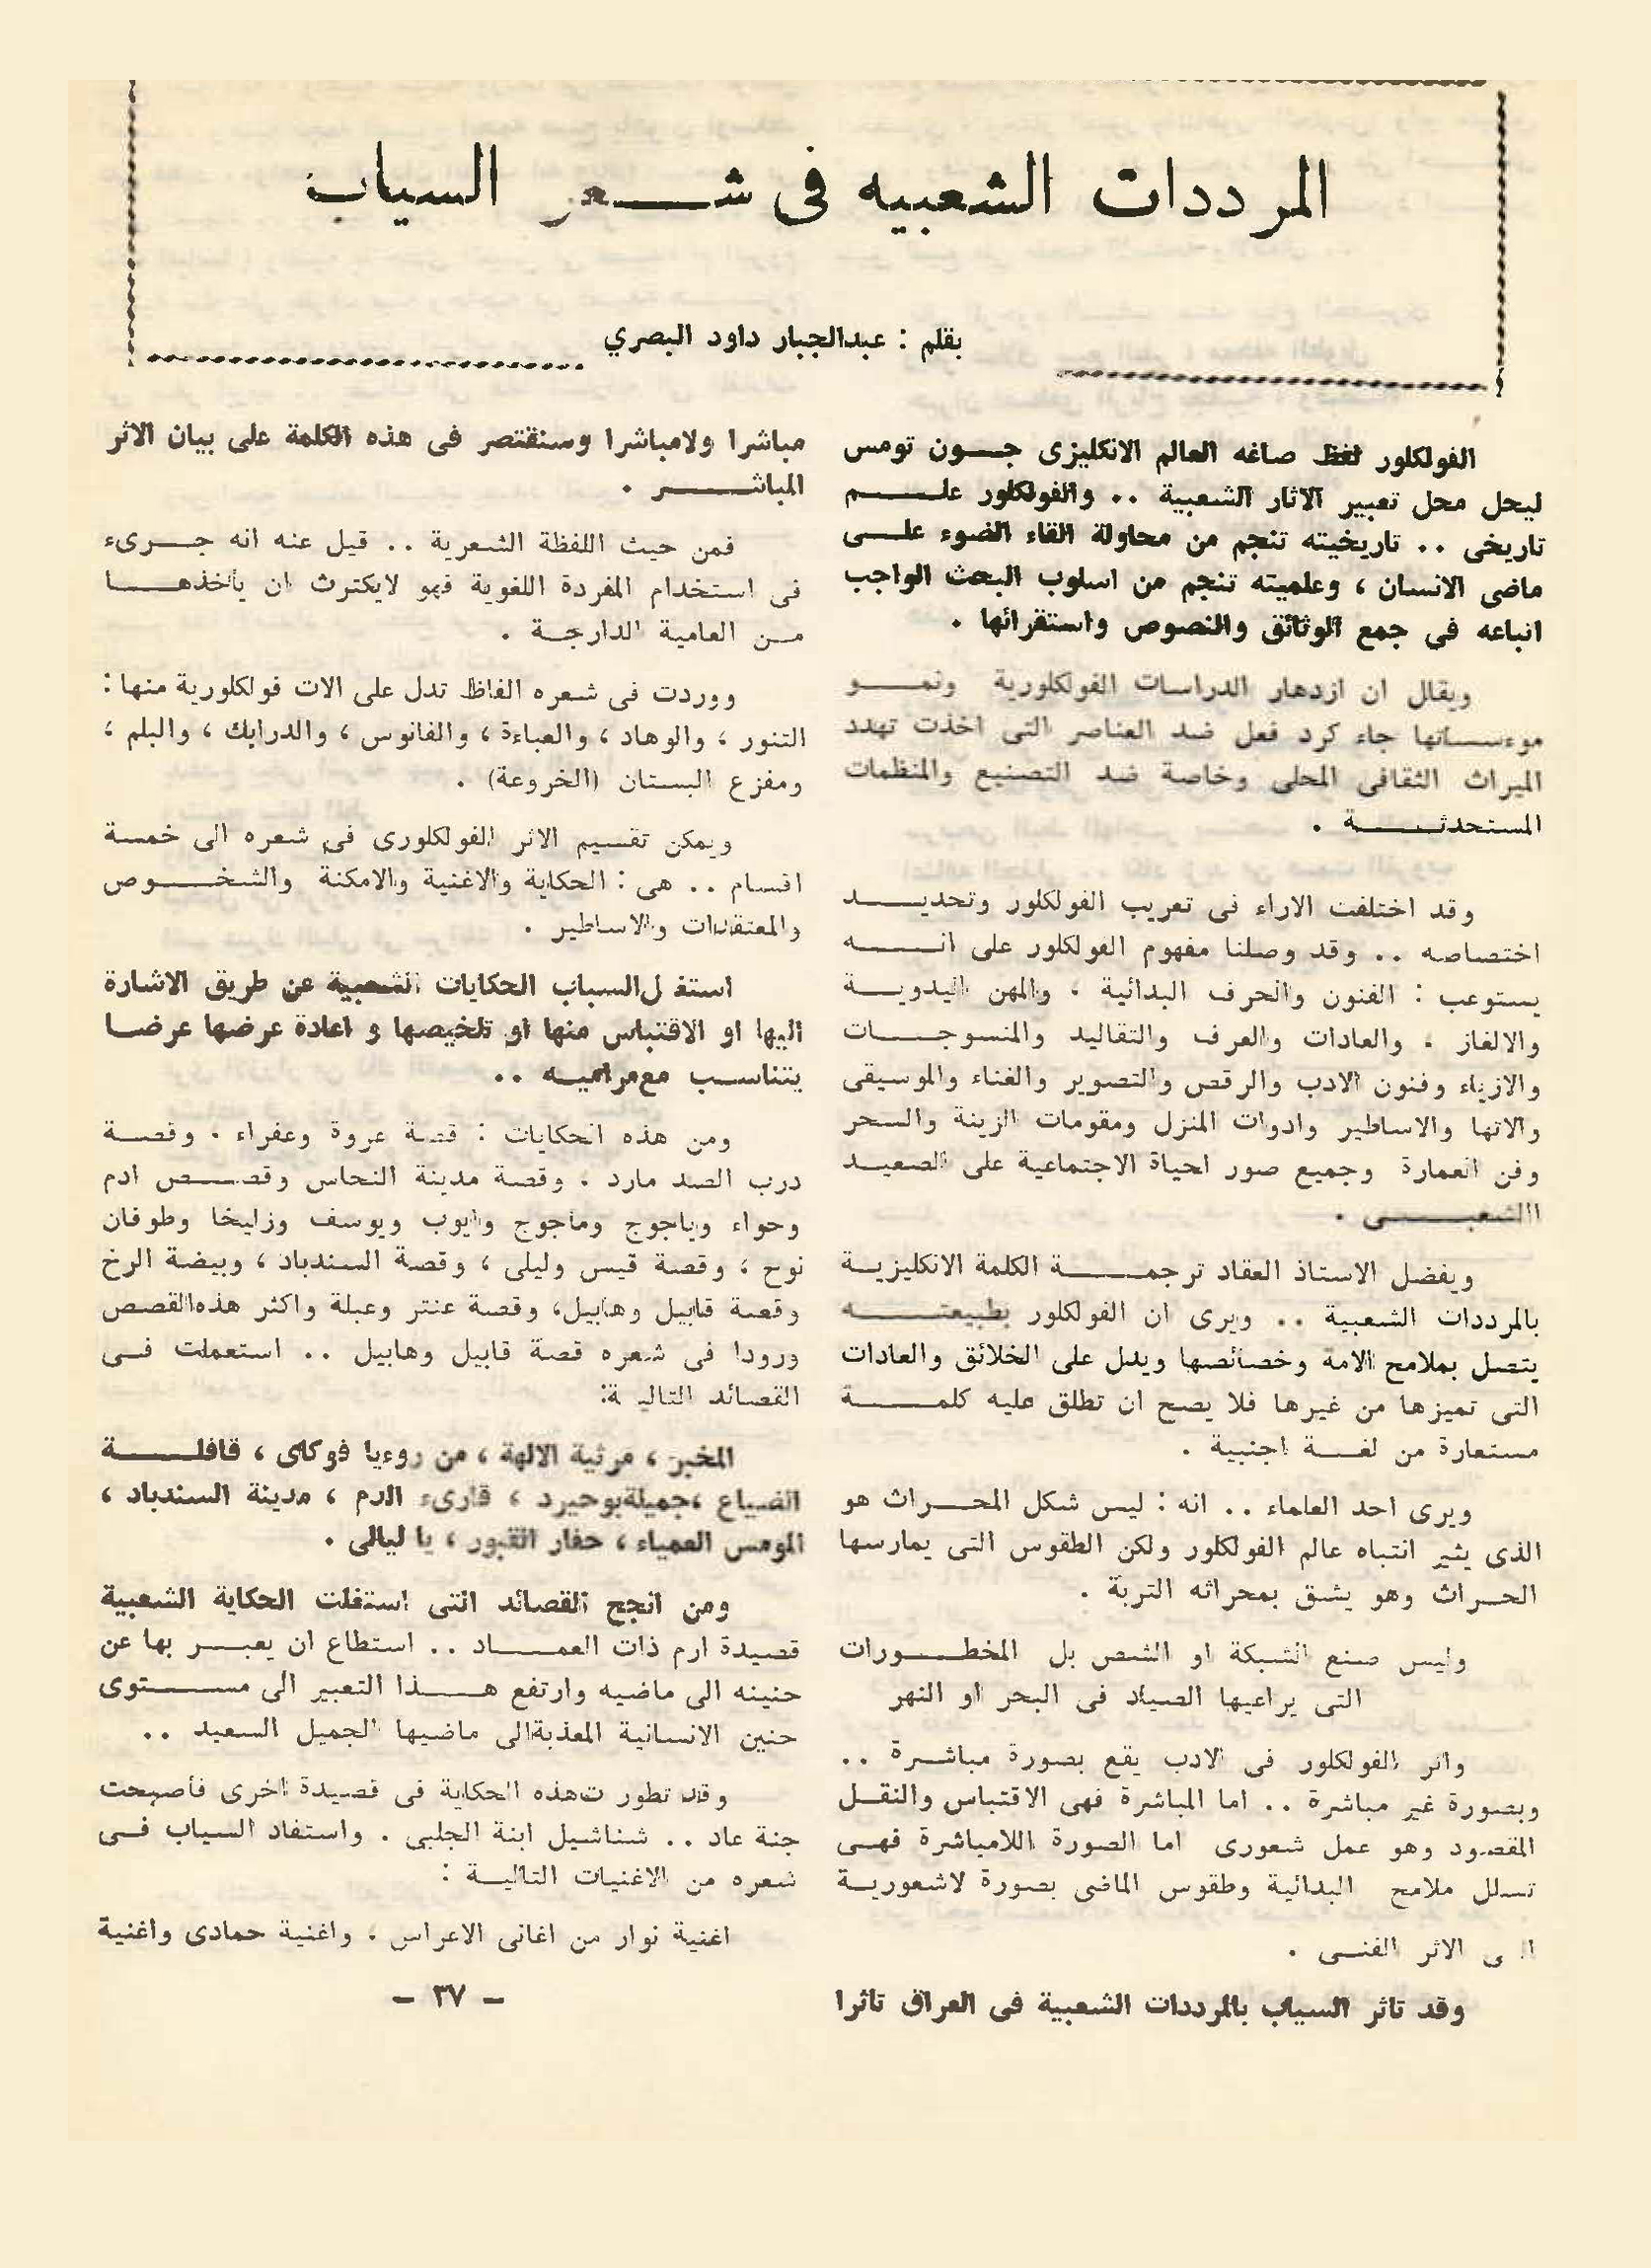 المرددات الشعبيه فى شعر السياب
بقلم : عبدالجبار داود البصري
الفولكلور لفظ صاغه العالم الانكليزى جون تومس
ليحل محل تعبير الاثار الشعبية .. والفولكلور علم
تاريخى .. تاريخيته تنجم من محاولة القاء الضوء على
ماضى الانسان ، وعلميته تنجم من اسلوب البحث الواجب
اتباعه فى جمع الوثائق والنصوص واستقرائها .
ويقال ان ازدهار الدراسات الفولكلورية ونمو
موءسساتها جاء كرد فعل ضد العناصر التى اخذت تهدد
الميراث الثقافى المحلى وخاصة ضد التصنيع والمنظمات
المستحدثة .
وقد اختلفت الاراء فى تعريب الفولكلور وتحديد
اختصاصه .. وقد وصلنا مفهوم الفولكلور على انه
يستوعب : الفنون والحرف البدائية ، والمهن اليدوية
والالغاز ، والعادات والعرف والتقاليد والمنسوجات
والازياء وفنون الادب والرقص والتصوير والغناء والموسيقى
والاتها والاساطير وادوات المنزل ومقومات الزينة والسحر
وفن العمارة وجميع صور احياة الاجتماعية على الصعيد
الشعبى .
ويفضل الاستاذ العقاد ترجمة الكلمة الانكليزية
بالمرددات الشعبية .. ويرى ان الفولكلور بطبيعته
يتصل بملامح الامة وخصائصها ويدل على الخلائق والعادات
التى تميزها من غيرها فلا يصح ان تطلق عليه كلمة
مستعارة من لغة اجنبية .
ويرى احد العلماء .. انه : ليس شكل المحراث هو
الذى يثير انتباه عالم الفولكلور ولكن الطقوس التى يمارسها
الحراث وهو يشق بمحراثه التربة .
وليس صنع الشبكة او الشص بل المخطورات
التى يراعيها الصياد فى البحر او النهر
واثر الفولكلور فى الادب يقع بصورة مباشرة ..
وبصورة غير مباشرة .. اما المباشرة فهى الاقتباس والنقل
المقصود وهو عمل شعورى اما الصورة اللامباشرة فهى
تسلل ملامح البدائية وطقوس الماضى بصورة لاشعورية
الى الاثر الفنى .
وقد تاثر السياب بالمرددات الشعبية فى العراق تاثرا
مباشرا ولامباشرا وسنقتصر فى هذه الكلمة على بيان الاثر
المباشر .
فمن حيث اللفظة الشعرية .. قيل عنه انه جرىء
فى استخدام المفردة اللغوية فهو لايكترث ان يأخذها
من العامية الدارجة .
ووردت فى شعره الفاظ تدل على الات فولكلورية منها :
التنور ، والوهاد ، والعباءة ، والفانوس ، والدرابك ، والبلم ،
ومفزع البستان (الخروعة) .
ويمكن تقسيم الاثر الفولكلورى فى شعره الى خمسة
اقسام .. هى : الحكاية والاغنية والامكنة والشخوص
والمعتقدات والاساطير .
استغل السياب الحكايات الشعبية عن طريق الاشارة
اليها او الاقتباس منها او تلخيصها و اعادة عرضها عرضا
يتناسب مع مراميه ..
ومن هذه الحكايات : قصة عروة وعفراء . وقصة
درب الصد مارد . وقصة مدينة النحاس وقصص ادم
وحواء وياجوج وماجوج وايوب ويوسف وزليخا وطوفان
نوح ، وقصة قيس وليلى ، وقصة السندباد ، وبيضة الرخ
وقصة قابيل وهابيل، وقصة عنتر وعبلة واكثر هذه القصص
ورودا فى شعره قصة قابيل وهابيل .. استعملت فى
القصائد التالية:
المخبر ، مرثية الالهة ، من روءيا فوكاى ، قافلة
الضياع ،جميلة بوحيرد ، قارىء الدم ، مدينة السندباد ،
المومس العمياء ، حفار القبور ، يا ليالى .
ومن انجح القصائد التى استغلت الحكاية الشعبية
قصيدة ارم ذات العماد .. استطاع ان يعبر بها عن
حنينه الى ماضيه وارتفع هذا التعبير الى مستوى
حنين الانسانية المعذبة الى ماضيها الجميل السعيد ..
وقد تطورت هذه الحكاية فى قصيدة اخرى فأصبحت
جنة عاد .. شناشيل ابنة الجلبى . واستفاد السياب فى
شعره من الاغنيات التالية :
اغنية نوار من اغانى الاعراس ، واغنية حمادى واغنية
– ٣٧ –